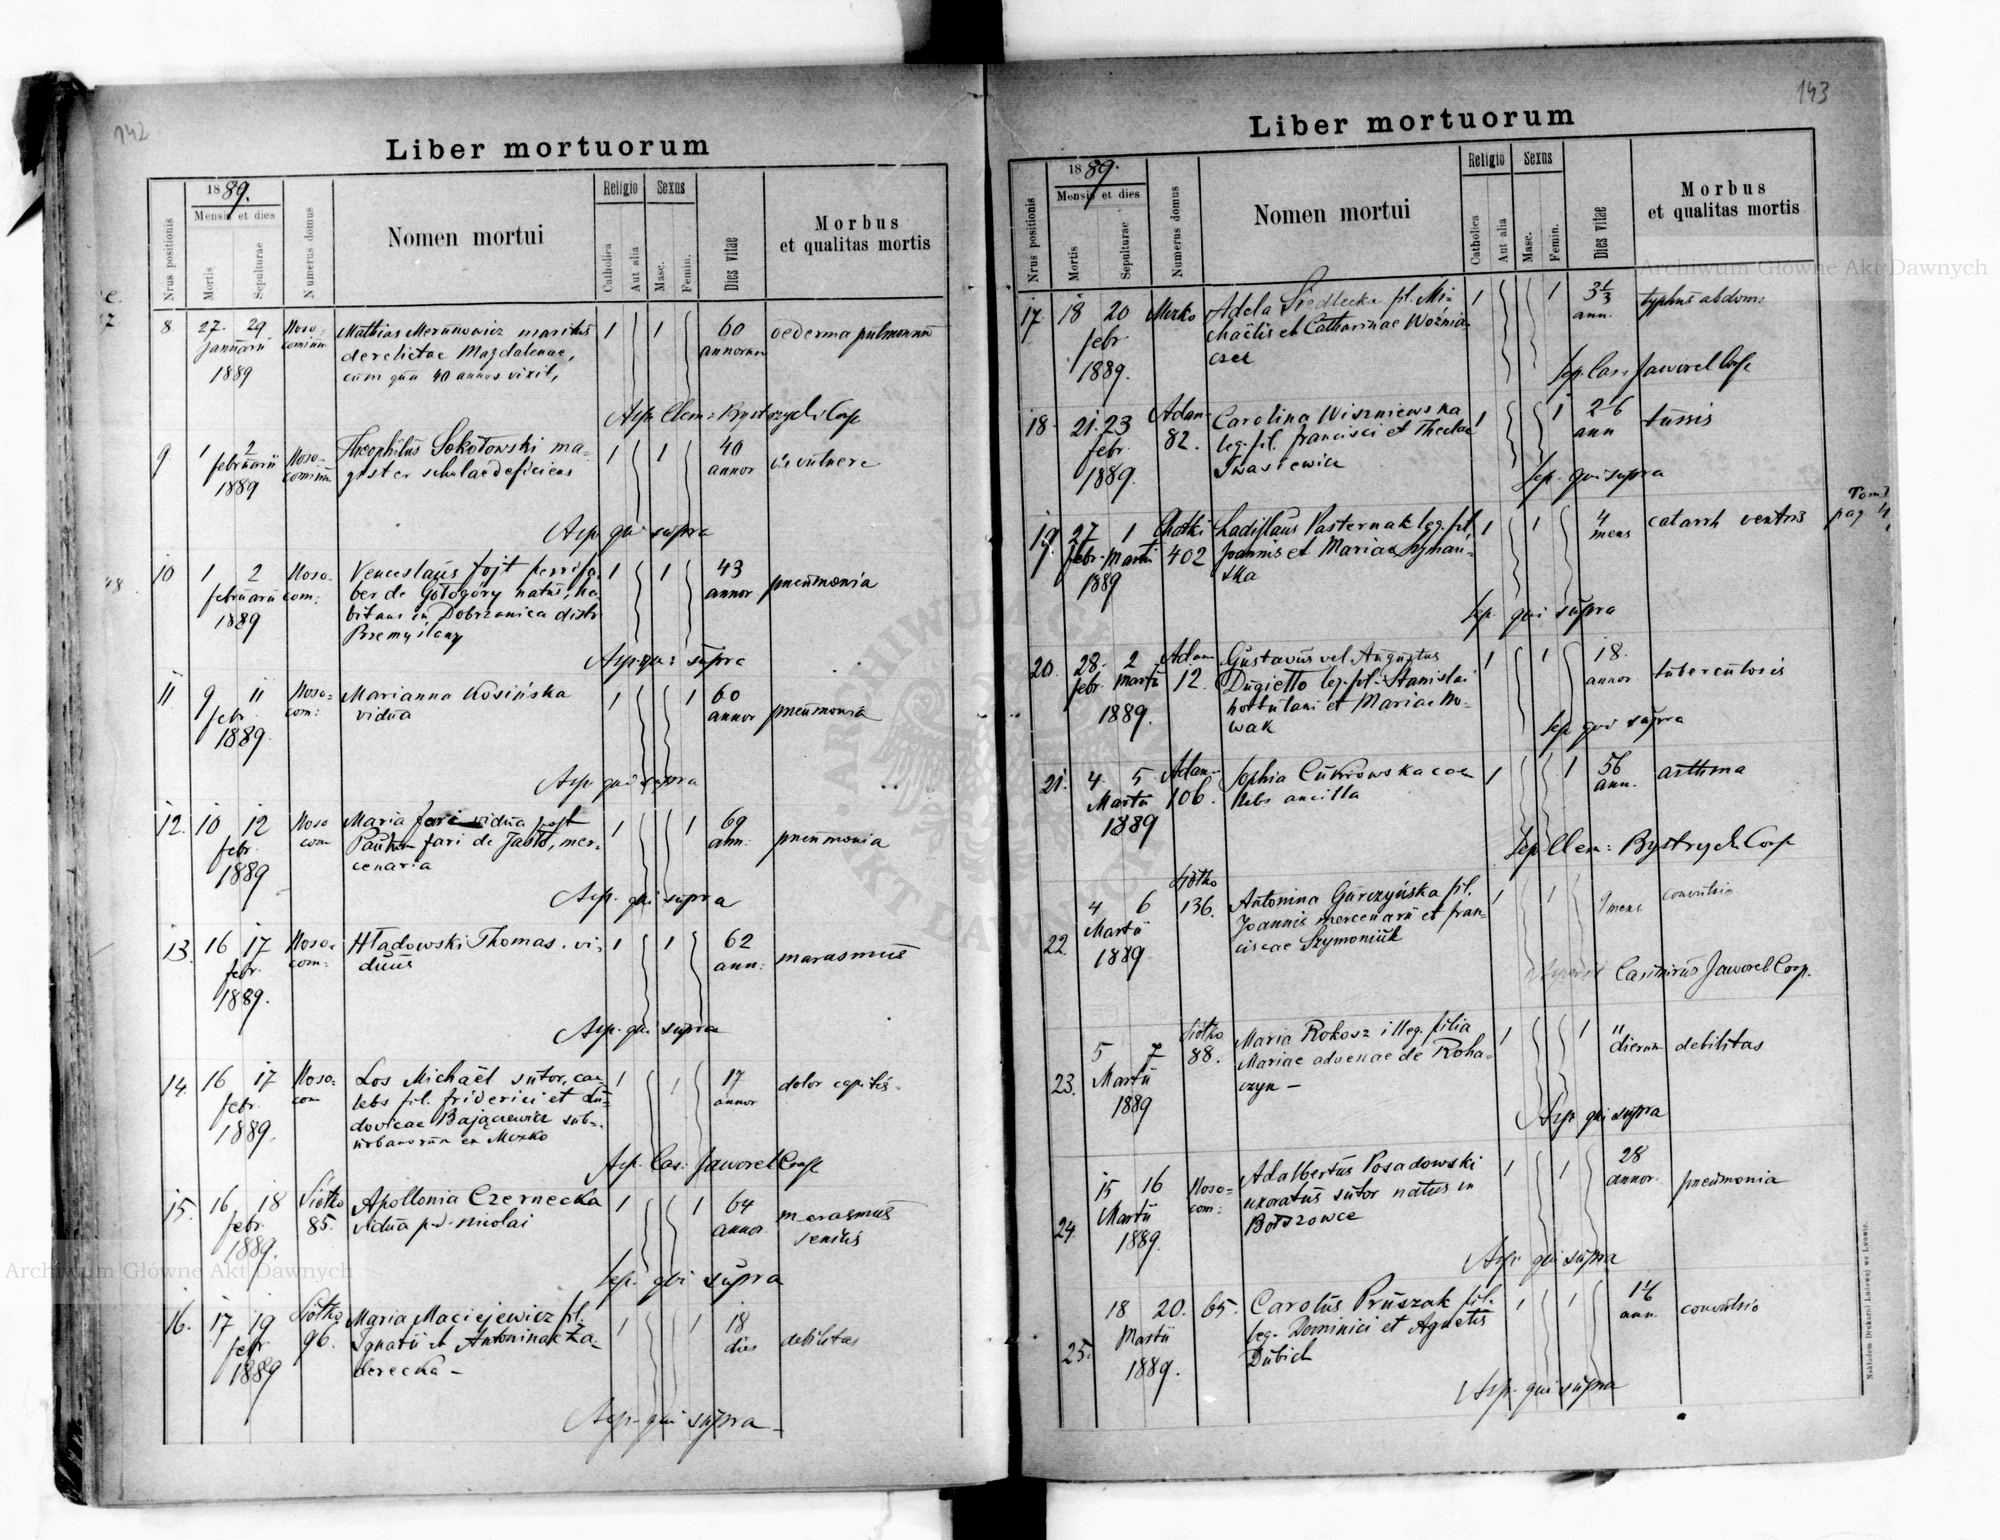 142
Liber mortuorum
Nrus positionis
1889.
Mensis et dies
Mortis
Sepulturae
Numerus domus
Nomen mortui
Religio
Catholica
Aut alia
Sexus
Masc.
Femin.
Dies vitae
Morbus
et qualitas mortis
8. 27. 29 Noso- Mathias Merunowicz maritus 1 1 60 oedema pulmonum
Januarii cominum derelictae Magdalenae, annorum
1889 cum qua 40 annos vixit,
Asp. Clem: Bystrzycki Coop
9 1 2 Noso- Theophilus Sokołowski ma- 1 1 40
februarii cominum gister scholae deficiens annor vulnere
1889
Asp. qui supra
10 1 2 Noso- Venceslaus Fojt ferrifa- 1 1 43 pneumonia
februarii com: ber de Gołogóry natus, ha- annor
1889 bitans in Dobrzanica distr
Przemyślany
Asp. qui supra
11 9 11 Noso- Marianna Kosińska 1 1 60 pneumonia
febr. com: vidua annor
1889.
Asp. qui supra
12. 10 12 Noso Maria Jari vidua post 1 1 69 pneumonia
febr. com Jari de Jasło, mer- ann.
1889 cenaria
Asp. qui supra
13. 16 17 Noso- Hładowski Thomas. vi- 1 1 62 marasmus
febr. com: duus ann:
1889.
Asp. qui supra
14. 16 17 Noso- Los Michaël sutor, cae- 1 1 17 dolor capitis.
febr. com lebs fil. Friderici et Lu- annor
1889. dovicae Bajgciewicz sub-
urbanorum ex Mozko
Asp. Cas: Jaworek Coop
15. 16 18 Siółko Apollonia Czernecka 1 1 64 marasmus
febr. 85. vidua p. Nicolai annor senilis
1889.
Sep. qui supra
16. 17 19 Siółko Maria Maciejewicz fil. 1 1 18 debilitas
febr 96. Ignatii et Antoninae Za- dies
1889 derecka –
Asp. qui supra –
143
Liber mortuorum
Nrus positionis
1889.
Mensis et dies
Mortis
Sepulturae
Numerus domus
Nomen mortui
Religio
Catholica
Aut alia
Sexus
Masc.
Femin.
Dies vitae
Morbus
et qualitas mortis
17 18 20 Mozko Adela Siedlecka fil. Mi- 1 1 3 1/3 typhus abdom:
febr. chaëlis et Catharinae Woźnia- ann.
1889. czek
Sep. Cas: Jaworek Coop
18. 21. 23 Adam- Carolina Wiszniewska 1 1 26 tussis
febr. 82. leg. fil. Francisci et Theclae ann
1889. Iwasiewicz
Sep. qui supra
19. 27 1 Chatki Ladislaus Pasternak leg. fil. 1 1 4 catarrh ventris
febr. Martii 402 Joannis et Mariae Szymań- mens
1889 ska
Tom I
pag. 4
Sep. qui supra
20. 28. 2 Adam Gustavus vel Augustus 1 1 18. tuberculosis
febr. Martii 12. Dugietto leg. fil. Stanislai annor
1889. hortulani et Mariae No-
wak
Sep. qui supra
21. 4 5 Adam- Sophia Cukrowska cae- 1 1 56 asthma
Martii 106. lebs ancilla ann.
1889
Sep. Clem: Bystrzycki Coop
22. 4 6 Siółko Antonina Gurczyńska fil. 1 1 9 convulsio
Martii 136. Joannis mercenarii et Fran- mens
1889 ciscae Szymoniuk
Casimirus Jaworek Coop.
23. 5 7 Siółko Maria Rokosz illeg. filia 1 1 11 debilitas
Martii 88. Mariae advenae de Roha- dierum
1889 czyn –
Asp. qui supra
24. 15 16 Noso- Adalbertus Posadowski 1 1 28 pneumonia
Martii com: uxoratus sutor natus in annor.
1889. Bołszowce
Asp. qui supra
25. 18 20. 65. Carolus Pruszak fil. 1 1 convulsio
Martii leg. Dominici et Agnetis ann.
1889. Dubich
Asp. qui supra
Nakładem Drukarni Ludowej we Lwowie.
Archiwum Główne Akt Dawnych
Archiwum Główne Akt Dawnych